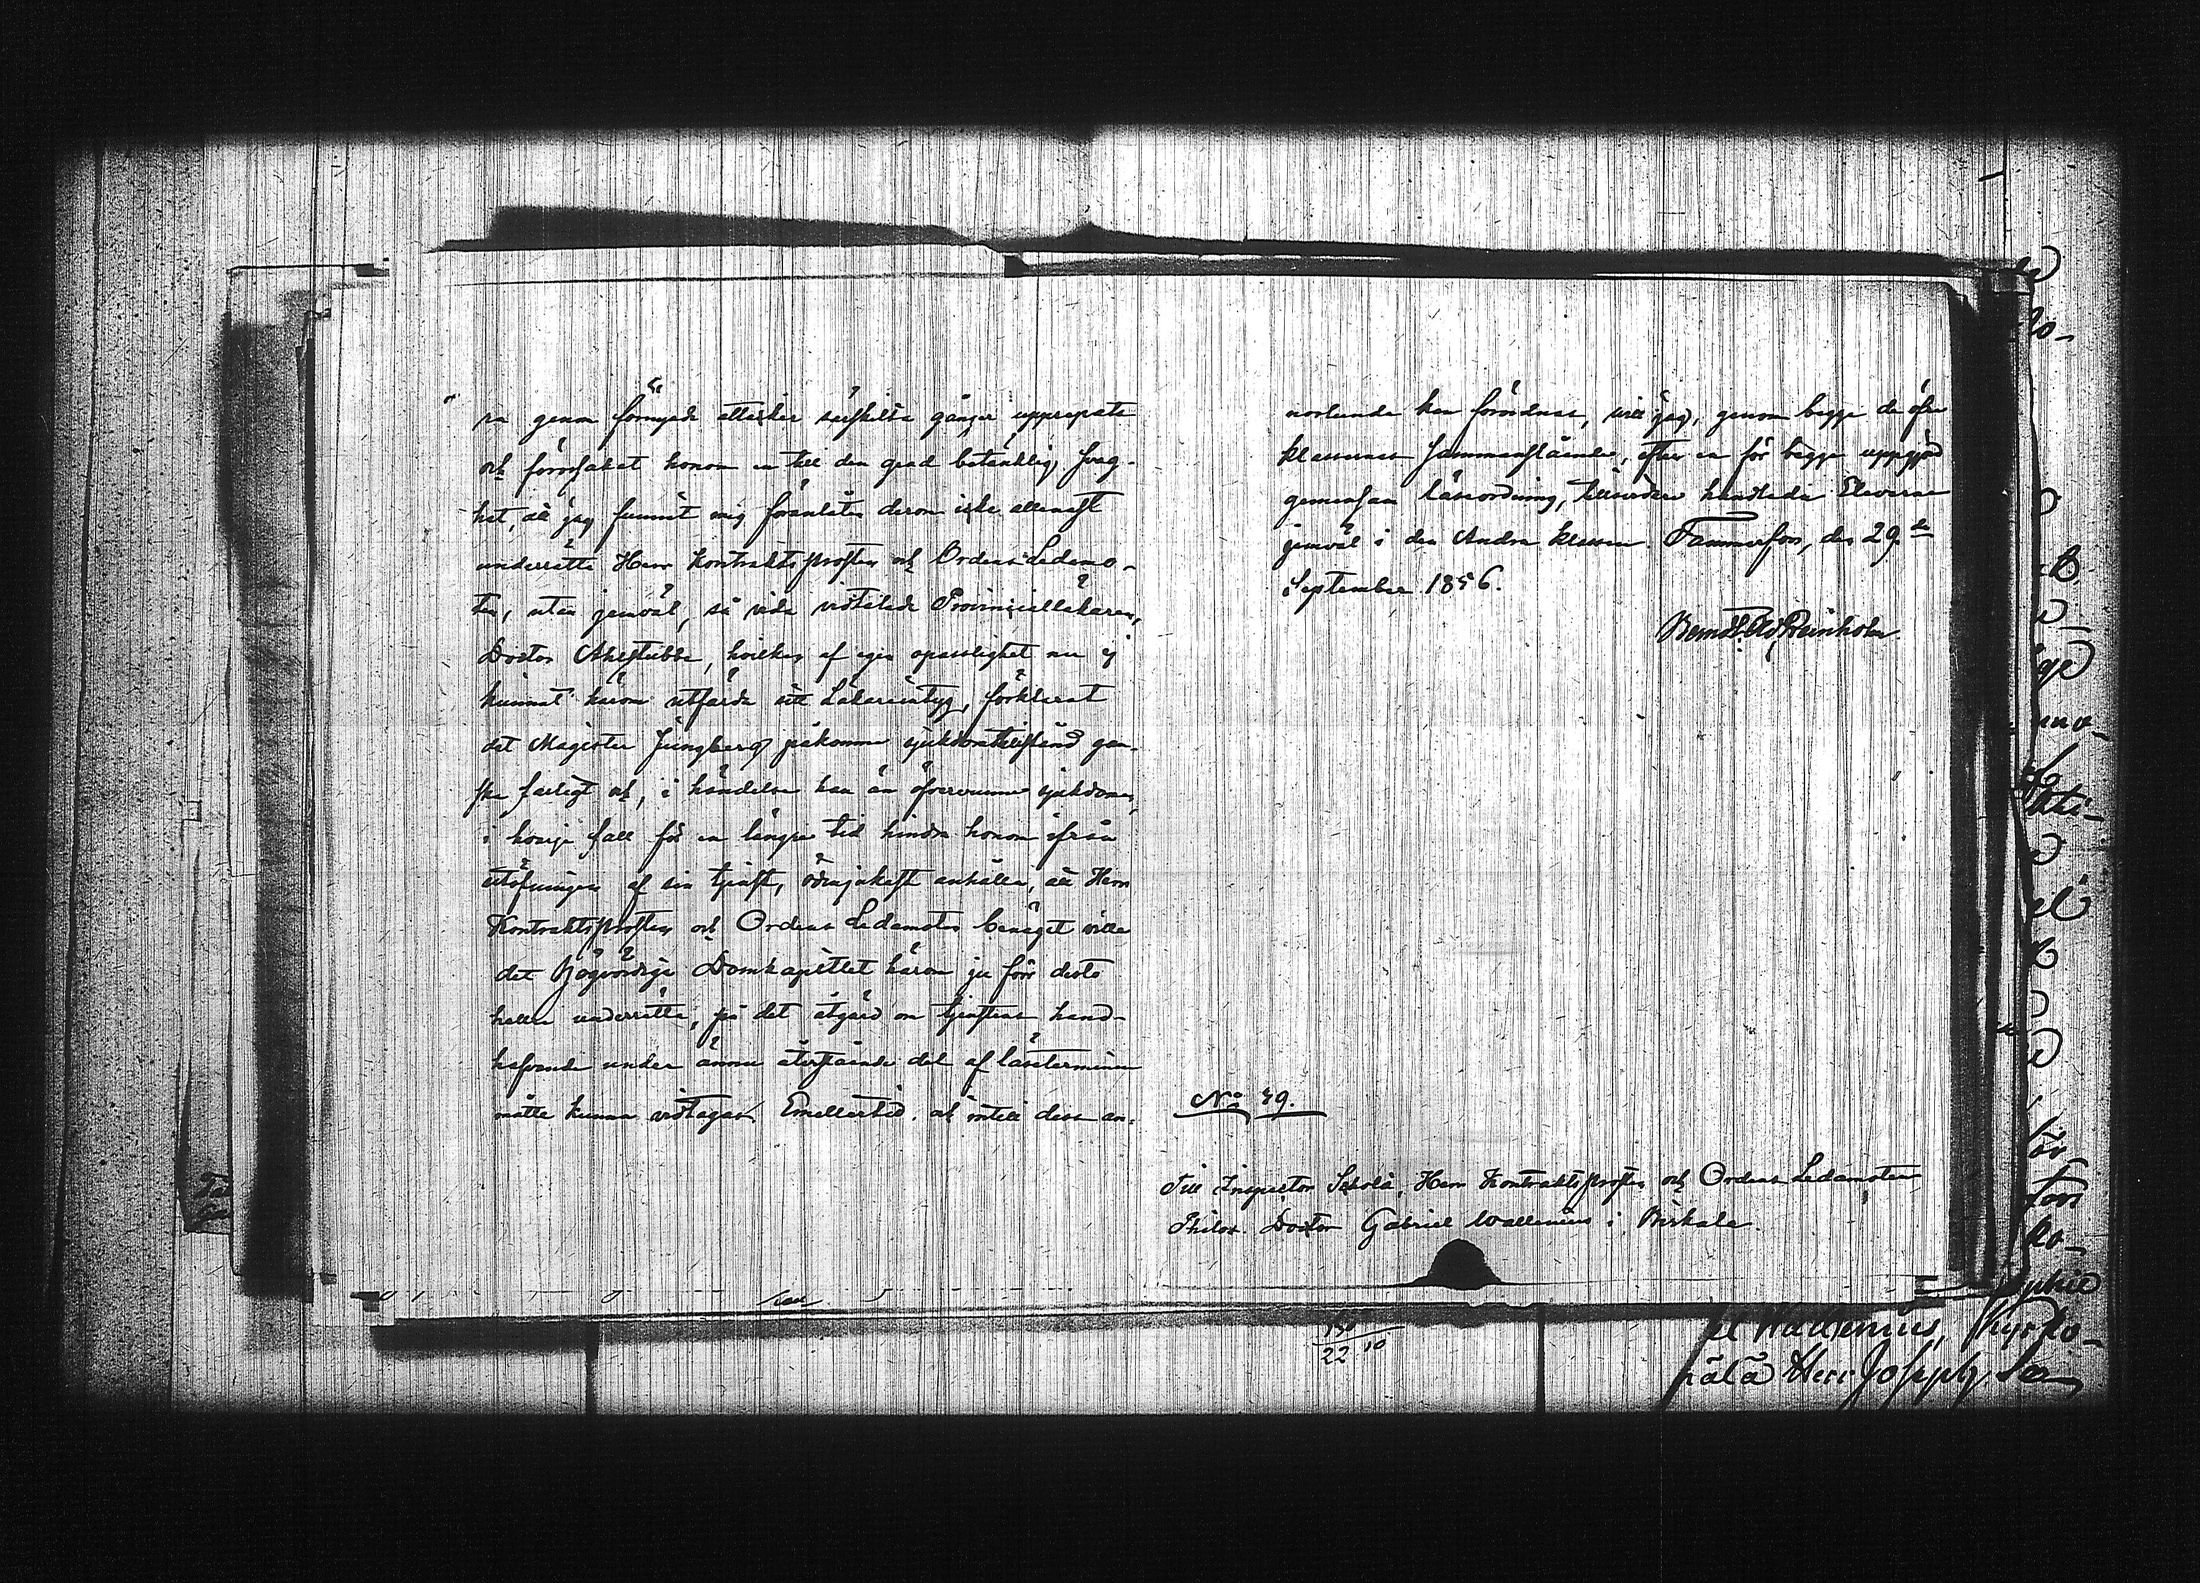 ra genom förnyade attacker särskilda gånger upprepats
och försatt honom in till den grad betänklig svag-
het, att jag funnit mig föranlåten derom icke allenast
underrätta Herr Kontraktsprosten och Ordens Ledamo-
ten, utan jemväl, så vida vidtalade Provincialläkaren,
Doctor Ahlstubbe, hvilken af egen opasslighet nu ej
kunnat härom utfärda sitt Läkareintyg, förklarat
det Magister Ljungberg påkomna sjukdomstillstånd gan-
ska farligt och, i händelse han än öfvervunne sjukdomen,
i hvarje fall för en längre tid hindra honom ifrån
utöfningen af sin tjenst, ödmjukast anhålla, att Herr
Kontraktsprosten och Ordens Ledamoten benäget ville
det Högvördige Domkapitlet härom ju förr desto
hellre underrätta, på det åtgärd om tjenstens hand-
hafvande under ännu återstående del af läseterminen
måtte kunna vidtagas. Emellertid, och intill dess an-
norlunda kan förordnas, vill jag, genom begge de öfre
klassernas sammanslående, efter en för begge uppgjord
gemensam läseordning, tillsvidare handleda Eleverne
jemväl i den Andra klassen. Tammerfors, den 29de
September 1856.
Bernd Ad Reinholm
No 49.
Till Inspector Scholæ, Herr Kontraktsprosten och Ordens Ledamoten
Philos. Doctor Gabriel Wallenius i Birkala.
22 10
el Wallenius, Kyrko-
Herr Joseph